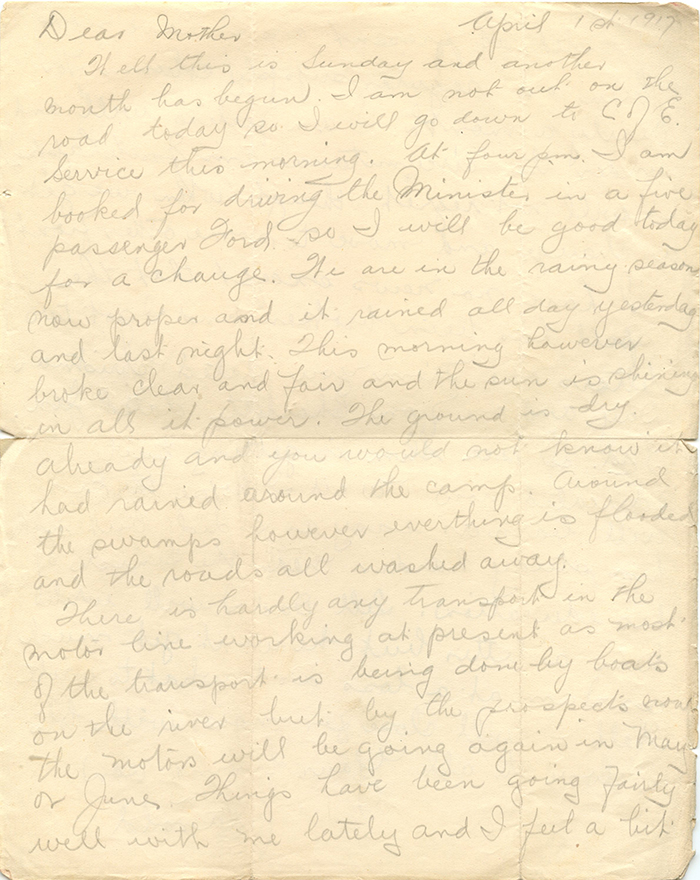 Dear Mother April 1st 1917
Well this is Sunday and another
month has begun. I am not out on the
road today so I will go down to C of E.
Service this morning. At four pm. I am
booked for driving the Minister in a five
passenger Ford so I will be good today
for a change. We are in the rainy season
now proper and it rained all day yesterday
and last night. This morning however
broke clear and fair and the sun is shining
in all it power. The ground is dry.
already and you would not know it
had rained around the camp. Around
the swamps however everthing is flooded
and the roads all washed away.
There is hardly any transport in the
motor line working at present as most
of the transport is being done by boats
on the river but by the prospects now
the motors will be going again in May
or June. Things have been going fairly
well with me lately and I feel a bit